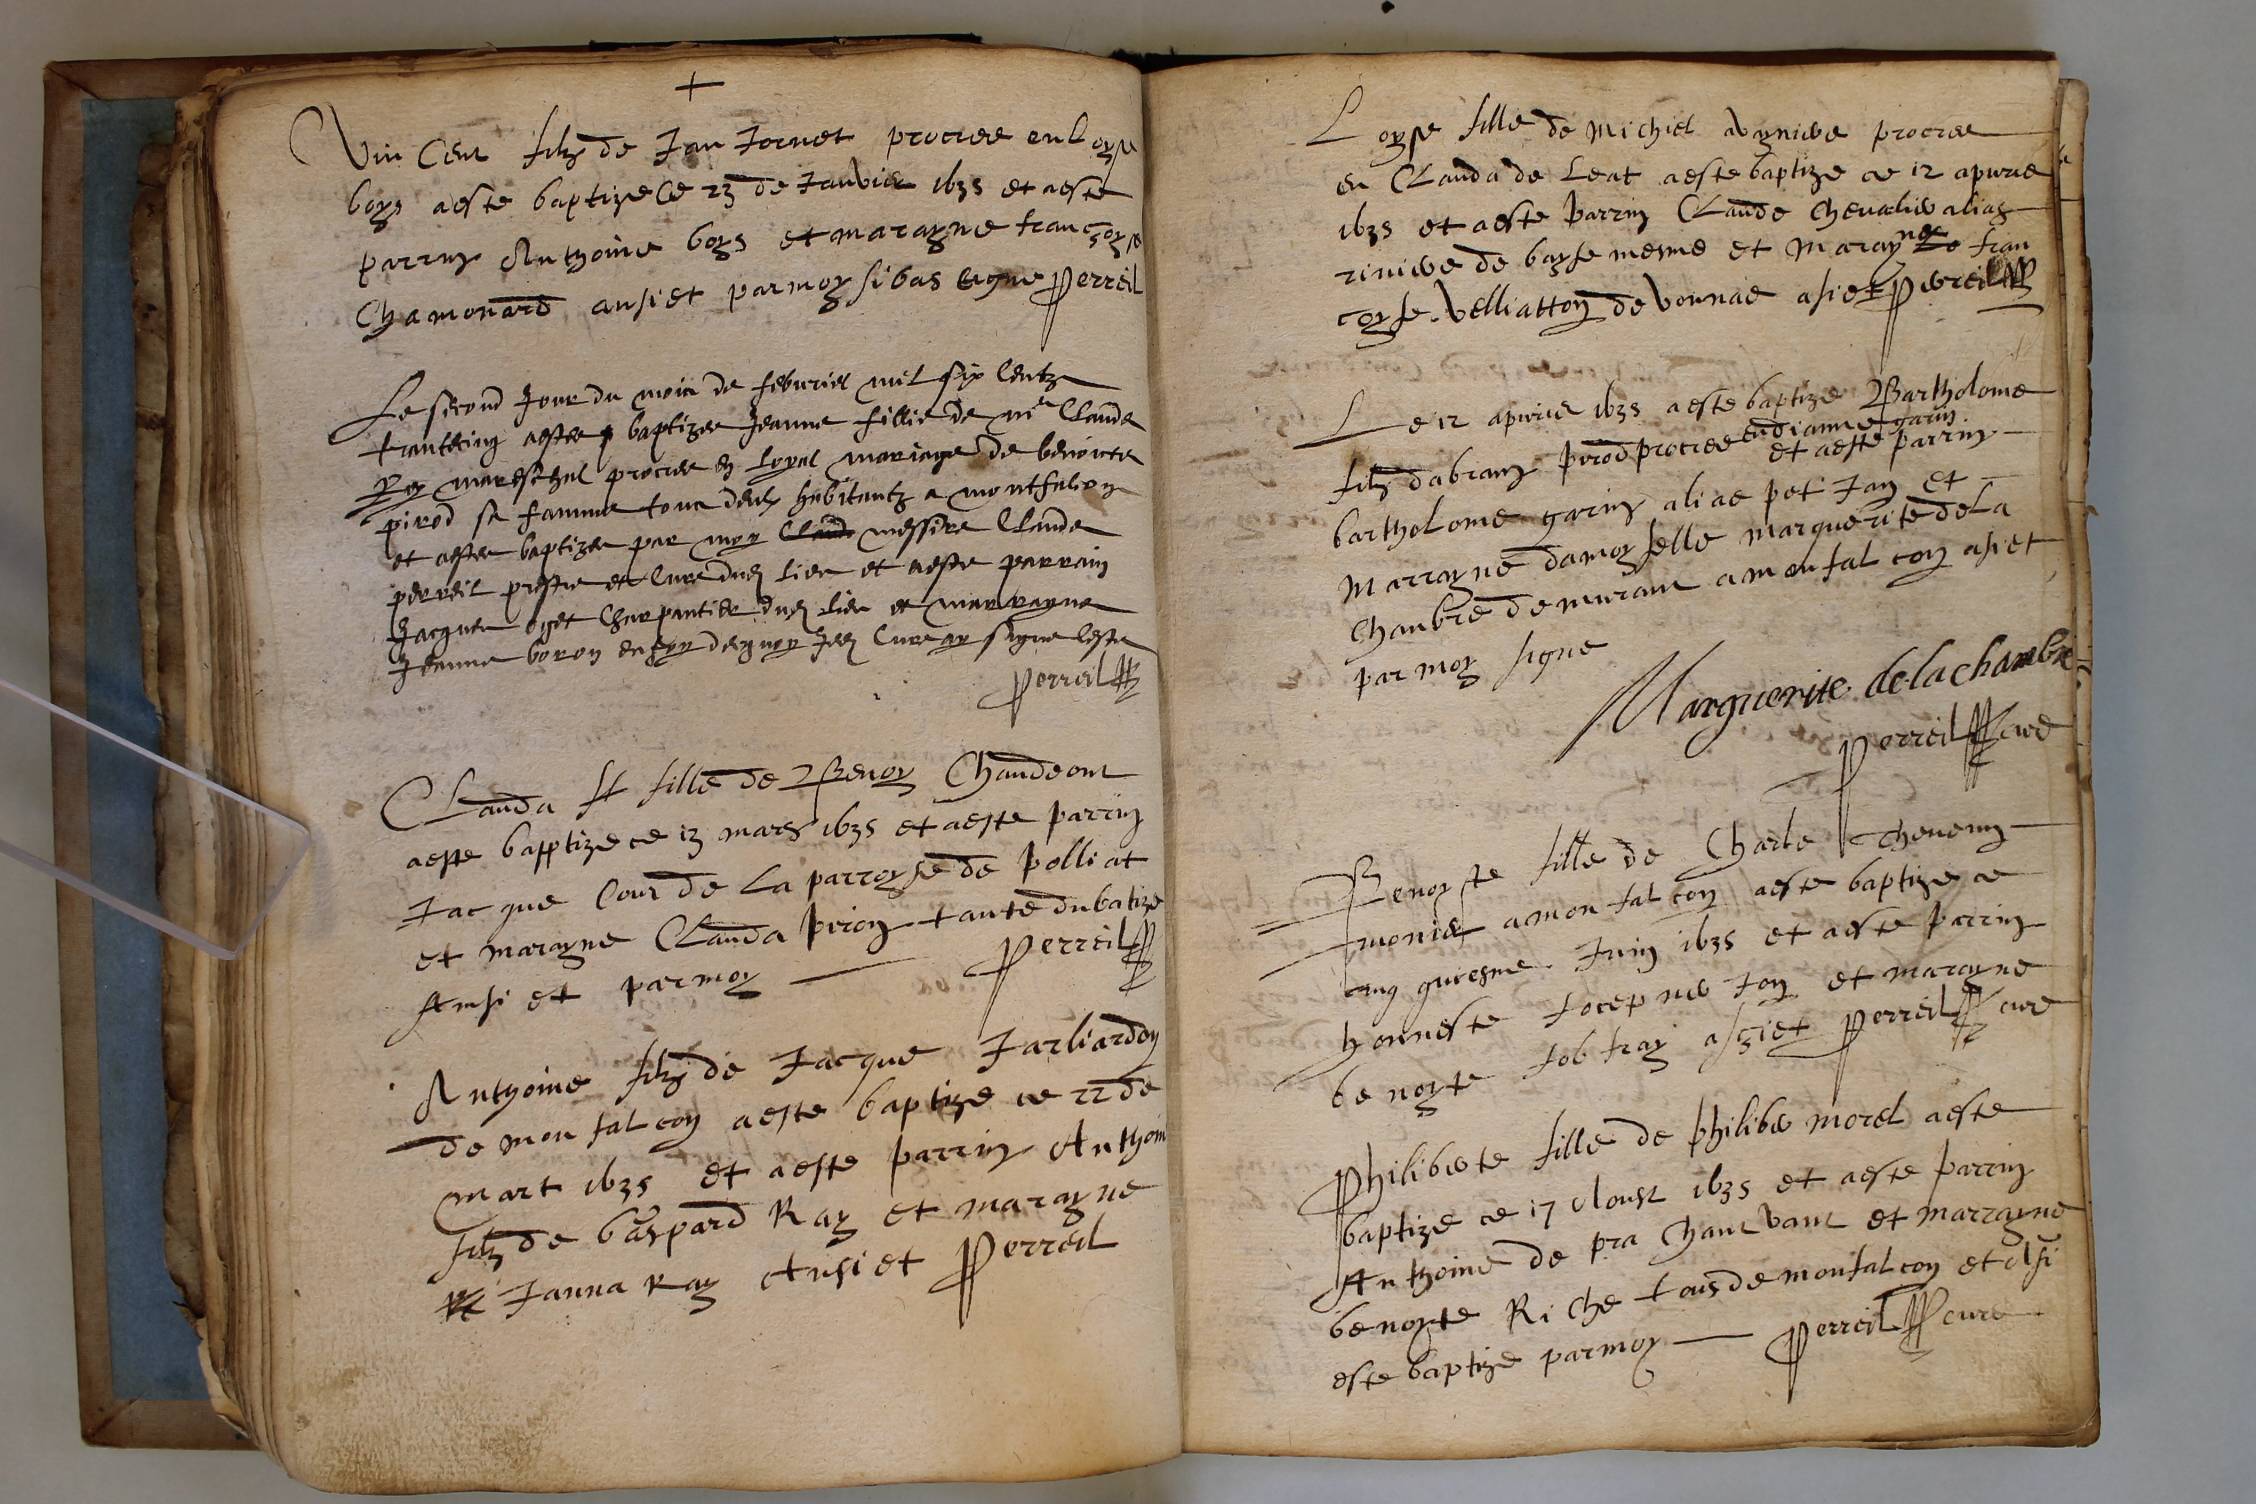 +
Vin Cent filz de Jan Jornet procree en Loyse
boys aeste baptize Ce 23 de Januier 1635 et aeste
parrin Anthoine boys et marayne françoyse
Chamonard ansi et par moy sibas signe Perreil
Le second Jour du moin de feburier mil six Centz
trantecinq aestee baptizee Jeanne fillie de me Claude
Rey mareschal procree en loyal mariage de benoicte
pirod sa famme tous deux habitantz a montfalcon
et aestee baptizee par moy Claude messire Claude
perreil prestre et Cure dud lieu et aeste parrain
Jacques oget Charpantier dud lieu et marrayne
Jeanne boron Jed Cure ay signe
Perreil
Clauda fille de Benoy Chaudeour
aeste bapptize ce 13 mars 1635 et aeste parrin
Jacque Cour de La parroyse de polliat
et marayne Clauda piron tante du batize
Ansi et par moy Perreil
Anthoine filz de Jacque Jarliardon
de montalcon aeste baptize ce 22 de
mart 1635 et aeste parrin Anthoin
filz de gaspard Ray et marayne
Janna Ray Ansi et Perreil
Loyse fille de Michiel procree
en Clauda de Leat aeste baptize ce 12 apuril
1635 et aeste parrin Claude Chevalier alias
de et Marayne fran
coyse velliatton de vonnas asi et Perreil
Le 12 apuril 1635 aeste baptize Bartholome
filz dabram pirod procree en dianne garin
et aeste parrin
bartholome garin alias pet Jan et
Marrayne damoyselle marguerite de La
Chanbre demurant a montalcon asi et
par moy signe
Marguerite de la chambre
Perreil cure
Benoyste fille de Charle Thevenin
a montalcon aeste baptize ce
Juin 1635 et aeste parrin
honneste et marayne
benoyte asi et Perreil cure
Philiberte fille de philiber morel aeste
baptize ce 17 Aoust 1635 et aeste parrin
Anthoine de pra et marrayne
benoyte Riche tous de montalcon et Asi
este baptize par moy Perreil cure